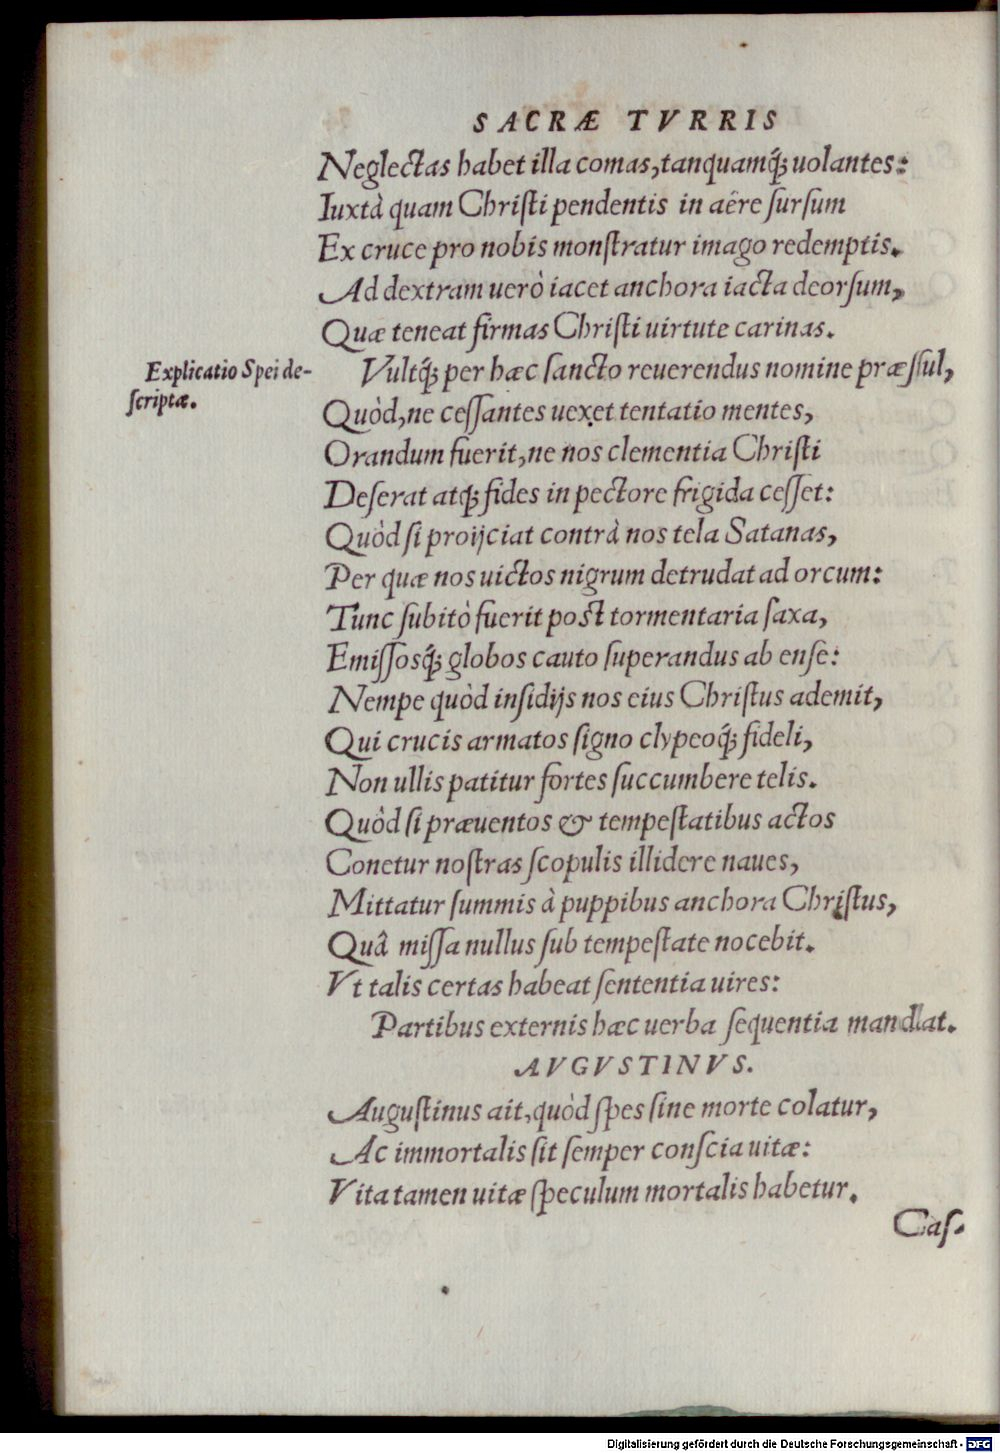 SACRÆ TVRRIS
Neglectas habet illa comas, tanquamq́; uolantes:
Iuxtà quam Chriſti pendentis in aëre ſurſum
Ex cruce pro nobis monſtratur imago redemptis.
Ad dextram uerò iacet anchora iacta deorſum,
Quæ teneat firmas Chriſti uirtute carinas.
Explicatio Spei de-
ſcriptæ.
Vultq́; per hæc ſancto reuerendus nomine præſſul,
Quòd, ne ceſſantes uexet tentatio mentes,
Orandum fuerit, ne nos clementia Chriſti
Deſerat atq; fides in pectore frigida ceſſet:
Quòd ſi proijciat contrà nos tela Satanas,
Per quæ nos uictos nigrum detrudat ad orcum:
Tunc ſubitò fuerit poſt tormentaria ſaxa,
Emiſſosq́; globos cauto ſuperandus ab enſe:
Nempe quòd inſidijs nos eius Chriſtus ademit,
Qui crucis armatos ſigno clypeoq́; fideli,
Non ullis patitur fortes ſuccumbere telis.
Quòd ſi præuentos & tempeſtatibus actos
Conetur noſtras ſcopulis illidere naues,
Mittatur ſummis à puppibus anchora Chriſtus,
Quâ miſſa nullus ſub tempeſtate nocebit.
Vt talis certas habeat ſententia uires:
Partibus externis hæc uerba ſequentia mandat.
AVGVSTINVS.
Auguſtinus ait, quòd ſpes ſine morte colatur,
Ac immortalis ſit ſemper conſcia uitæ:
Vita tamen uitæ ſpeculum mortalis habetur.
Caſ-
Digitalisierung gefördert durch die Deutsche Forschungsgemeinschaft - DFG